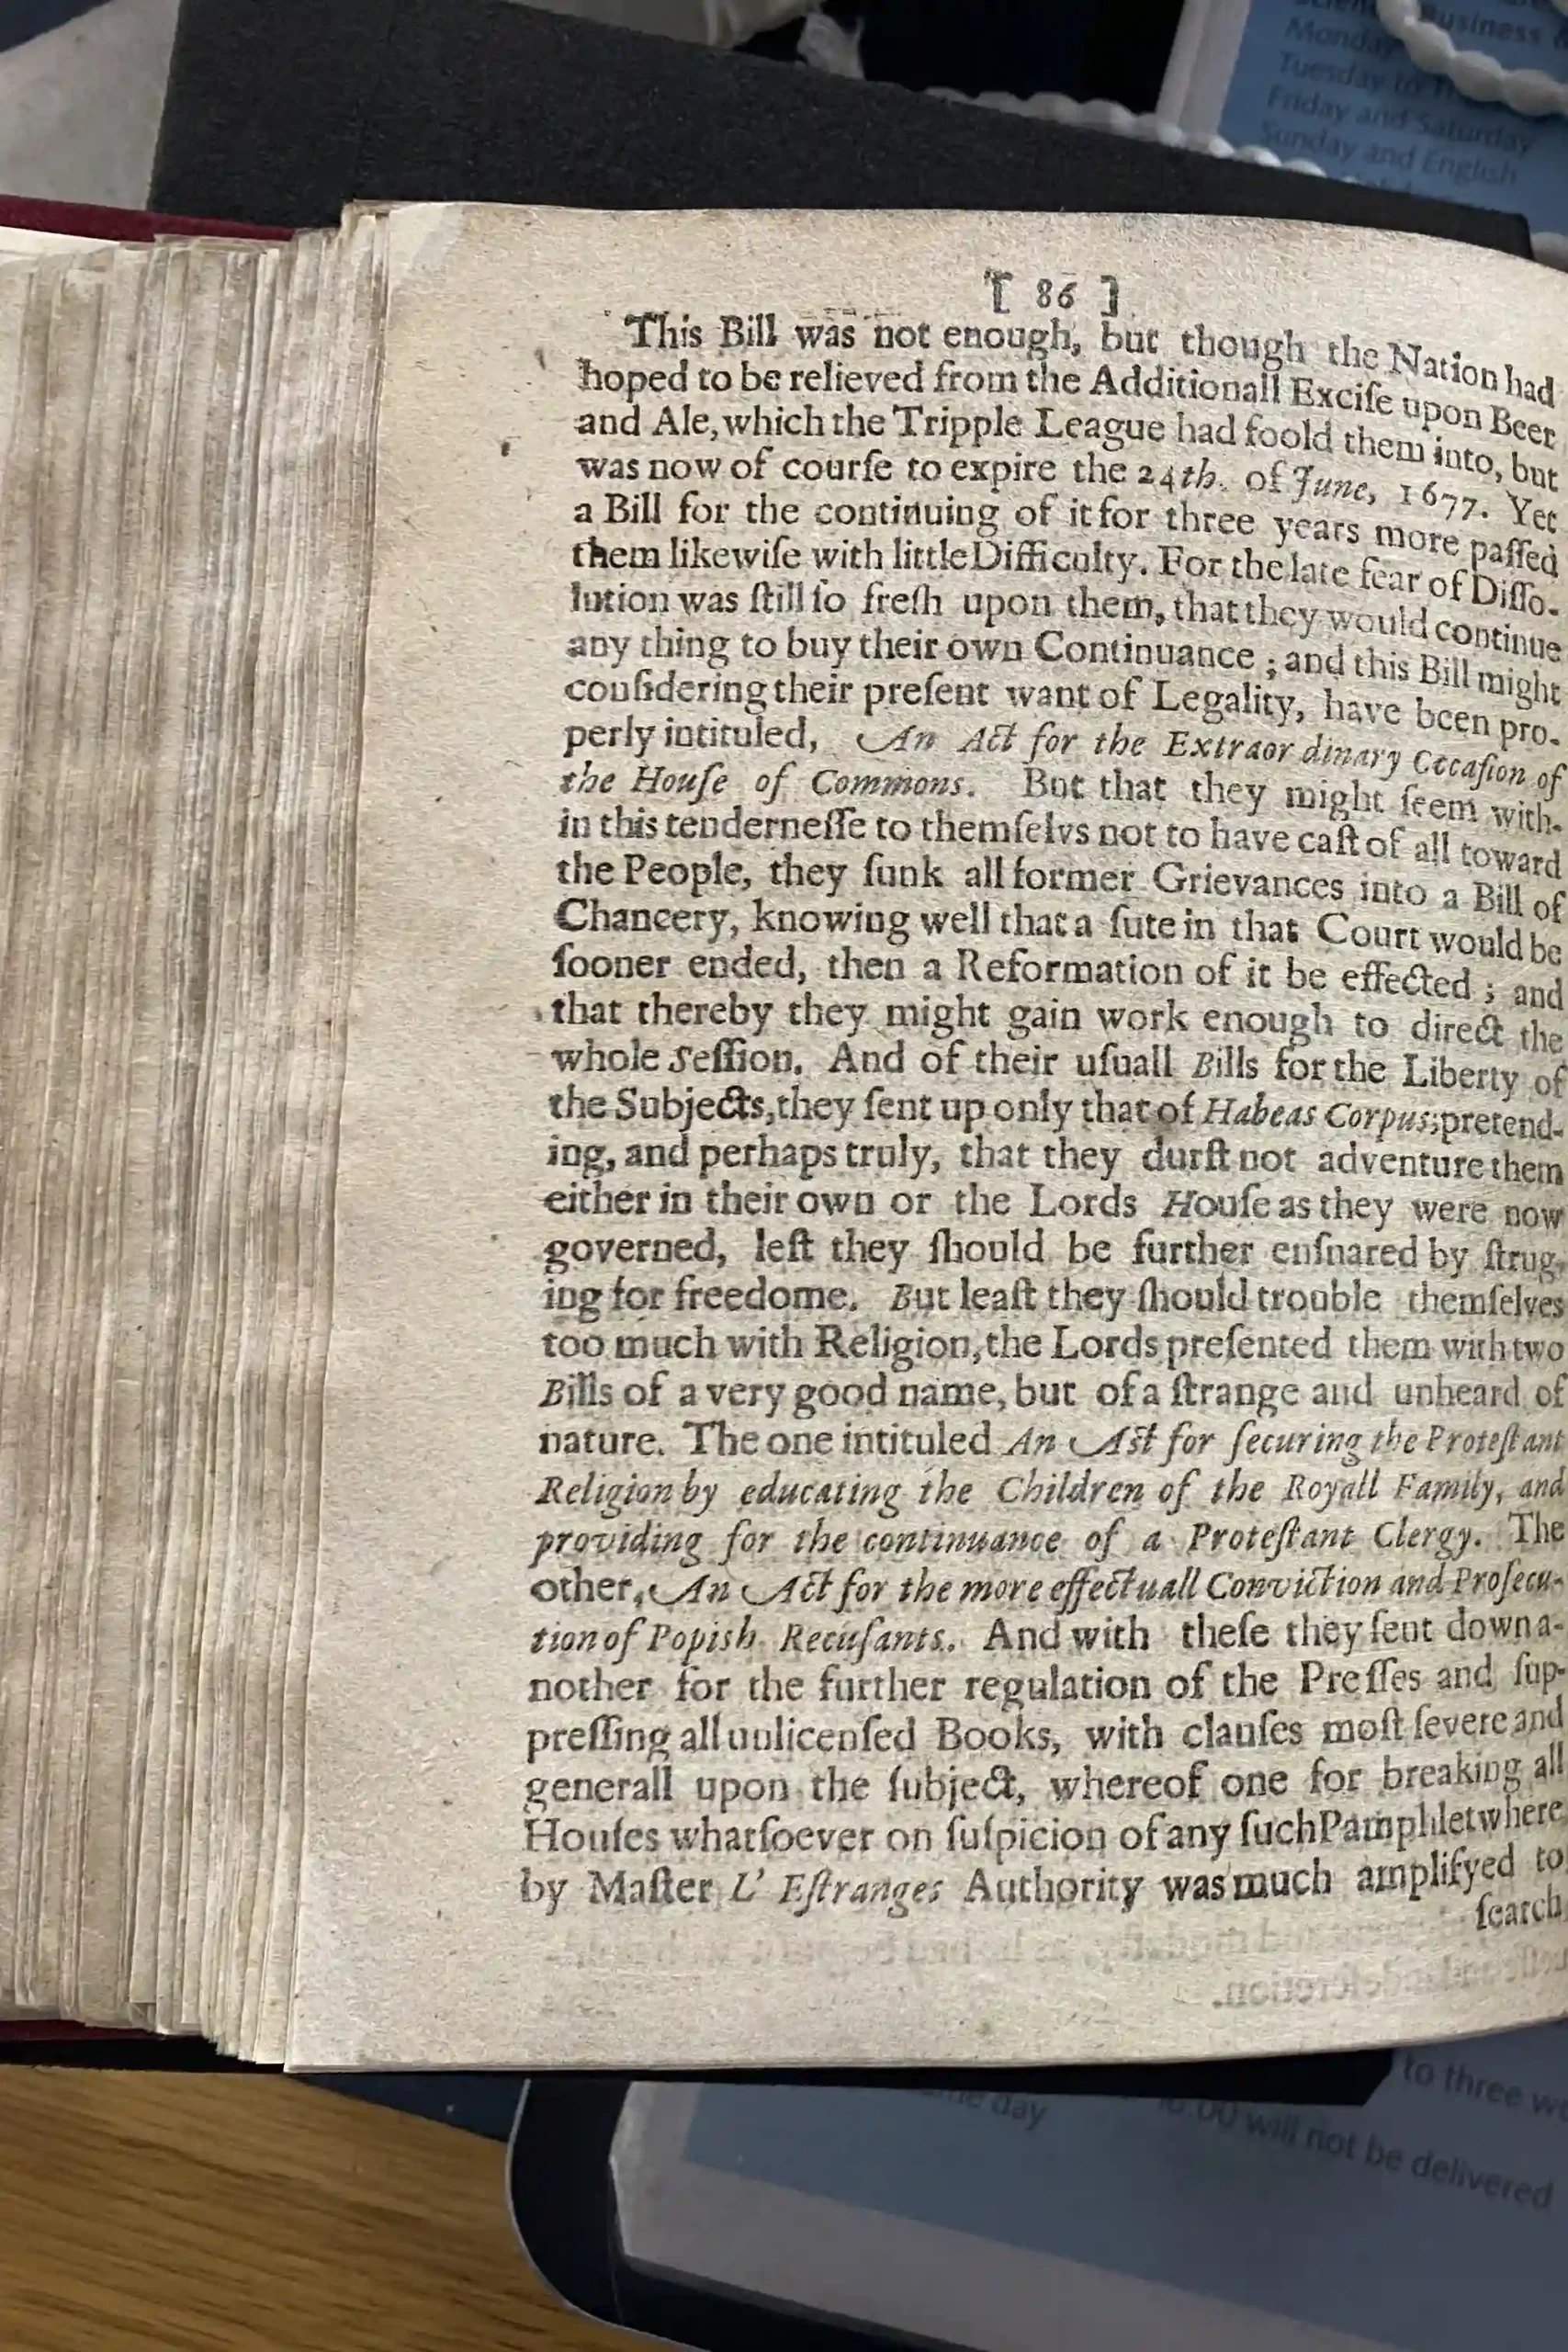 Business
Monday
Tuesday to
Friday and Saturday
Sunday and English
[ 86 ]
This Bill was not enough, but though the Nation had
hoped to be relieved from the Additionall Exciſe upon Beer
and Ale, which the Tripple League had foold them into, but
was now of courſe to expire the 24th. of June, 1677. Yet
a Bill for the continuing of it for three years more paſſed
them likewiſe with little Difficulty. For the late fear of Diſſo-
lution was ſtill ſo freſh upon them, that they would continue
any thing to buy their own Continuance ; and this Bill might
conſidering their preſent want of Legality, have been pro-
perly intituled, An Act for the Extraor dinary Occaſion of
the Houſe of Commons. But that they might ſeem with-
in this tenderneſſe to themſelvs not to have caſt of all toward
the People, they ſunk all former Grievances into a Bill of
Chancery, knowing well that a ſute in that Court would be
ſooner ended, then a Reformation of it be effected ; and
that thereby they might gain work enough to direct the
whole Seſſion. And of their uſuall Bills for the Liberty of
the Subjects, they ſent up only that of Habeas Corpus; pretend-
ing, and perhaps truly, that they durſt not adventure them
either in their own or the Lords Houſe as they were now
governed, leſt they ſhould be further enſnared by ſtrug-
ing for freedome. But leaſt they ſhould trouble themſelves
too much with Religion, the Lords preſented them with two
Bills of a very good name, but of a ſtrange and unheard of
nature. The one intituled An Act for ſecuring the Proteſtant
Religion by educating the Children of the Royall Family, and
providing for the continuance of a Proteſtant Clergy. The
other, An Act for the more effectuall Conviction and Proſecu-
tion of Popish Recuſants. And with theſe they ſent down a-
nother for the further regulation of the Preſſes and ſup-
preſſing all unlicenſed Books, with clauſes moſt ſevere and
generall upon the ſubject, whereof one for breaking all
Houſes whatſoever on ſuſpicion of any ſuch Pamphlet where
by Maſter L' Eſtranges Authority was much amplifyed to
ſearch
to three
day
will not be delivered